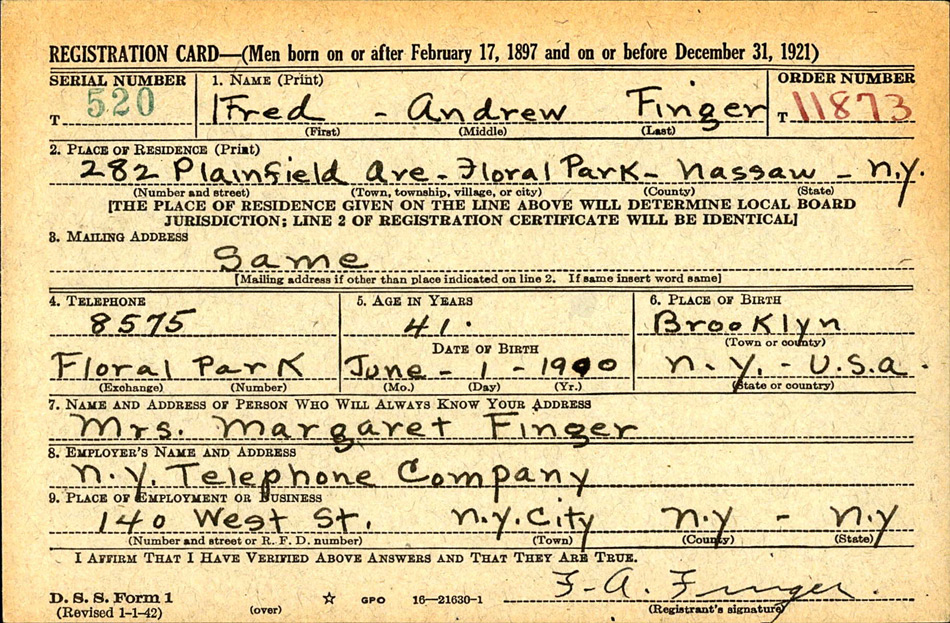 REGISTRATION CARD—(Men born on or after February 17, 1897 and on or before December 31, 1921)
SERIAL NUMBER 1. NAME (Print) ORDER NUMBER
T 520 Fred - Andrew Finger T 11873
(First) (Middle) (Last)
2. PLACE OF RESIDENCE (Print)
282 Plainfield Ave - Floral Park - Nassaw - N.Y.
(Number and street) (Town, township, village, or city) (County) (State)
[THE PLACE OF RESIDENCE GIVEN ON THE LINE ABOVE WILL DETERMINE LOCAL BOARD
JURISDICTION; LINE 2 OF REGISTRATION CERTIFICATE WILL BE IDENTICAL]
3. MAILING ADDRESS
Same
[Mailing address if other than place indicated on line 2. If same insert word same]
4. TELEPHONE 5. AGE IN YEARS 6. PLACE OF BIRTH
8575 41. Brooklyn
DATE OF BIRTH (Town or county)
Floral Park June - 1 - 1900 N.Y. - U.S.A.
(Exchange) (Number) (Mo.) (Day) (Yr.) (State or country)
7. NAME AND ADDRESS OF PERSON WHO WILL ALWAYS KNOW YOUR ADDRESS
Mrs. Margaret Finger
8. EMPLOYER'S NAME AND ADDRESS
N.Y. Telephone Company
9. PLACE OF EMPLOYMENT OR BUSINESS
140 West St. N.Y. City N.Y - N.Y
(Number and street or R. F. D. number) (Town) (County) (State)
I AFFIRM THAT I HAVE VERIFIED ABOVE ANSWERS AND THAT THEY ARE TRUE.
F. A. Finger.
D. S. S. Form 1
(Revised 1-1-42) (over) ☆ GPO 16—21630-1 (Registrant's signature)